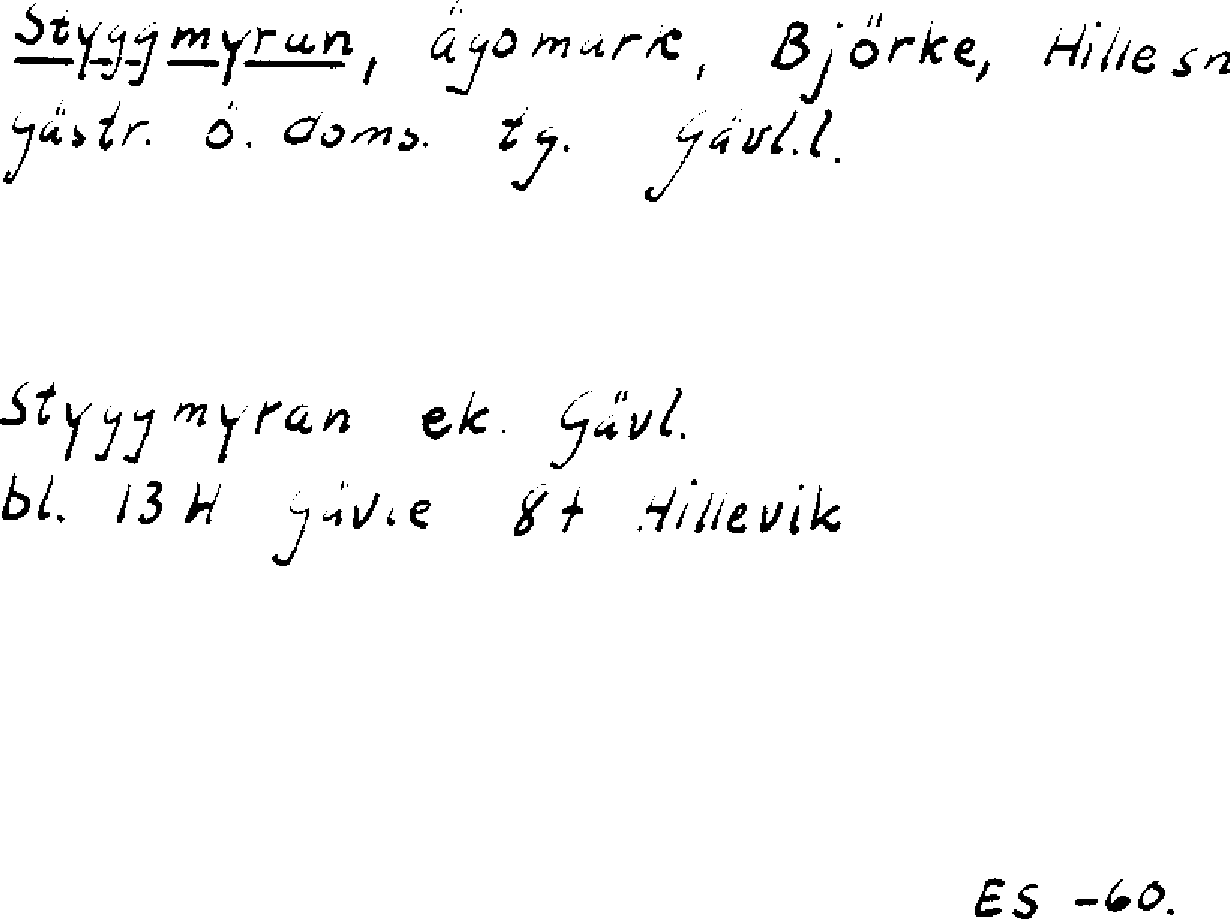 Styggmyran, ägomark, Björke, Hille sn
Gästr. ö. doms. tg. Gävl.l.
Styggmyran ek. Gävl.
bl. 13 H Gävle 8f Hillevik
ES -60.